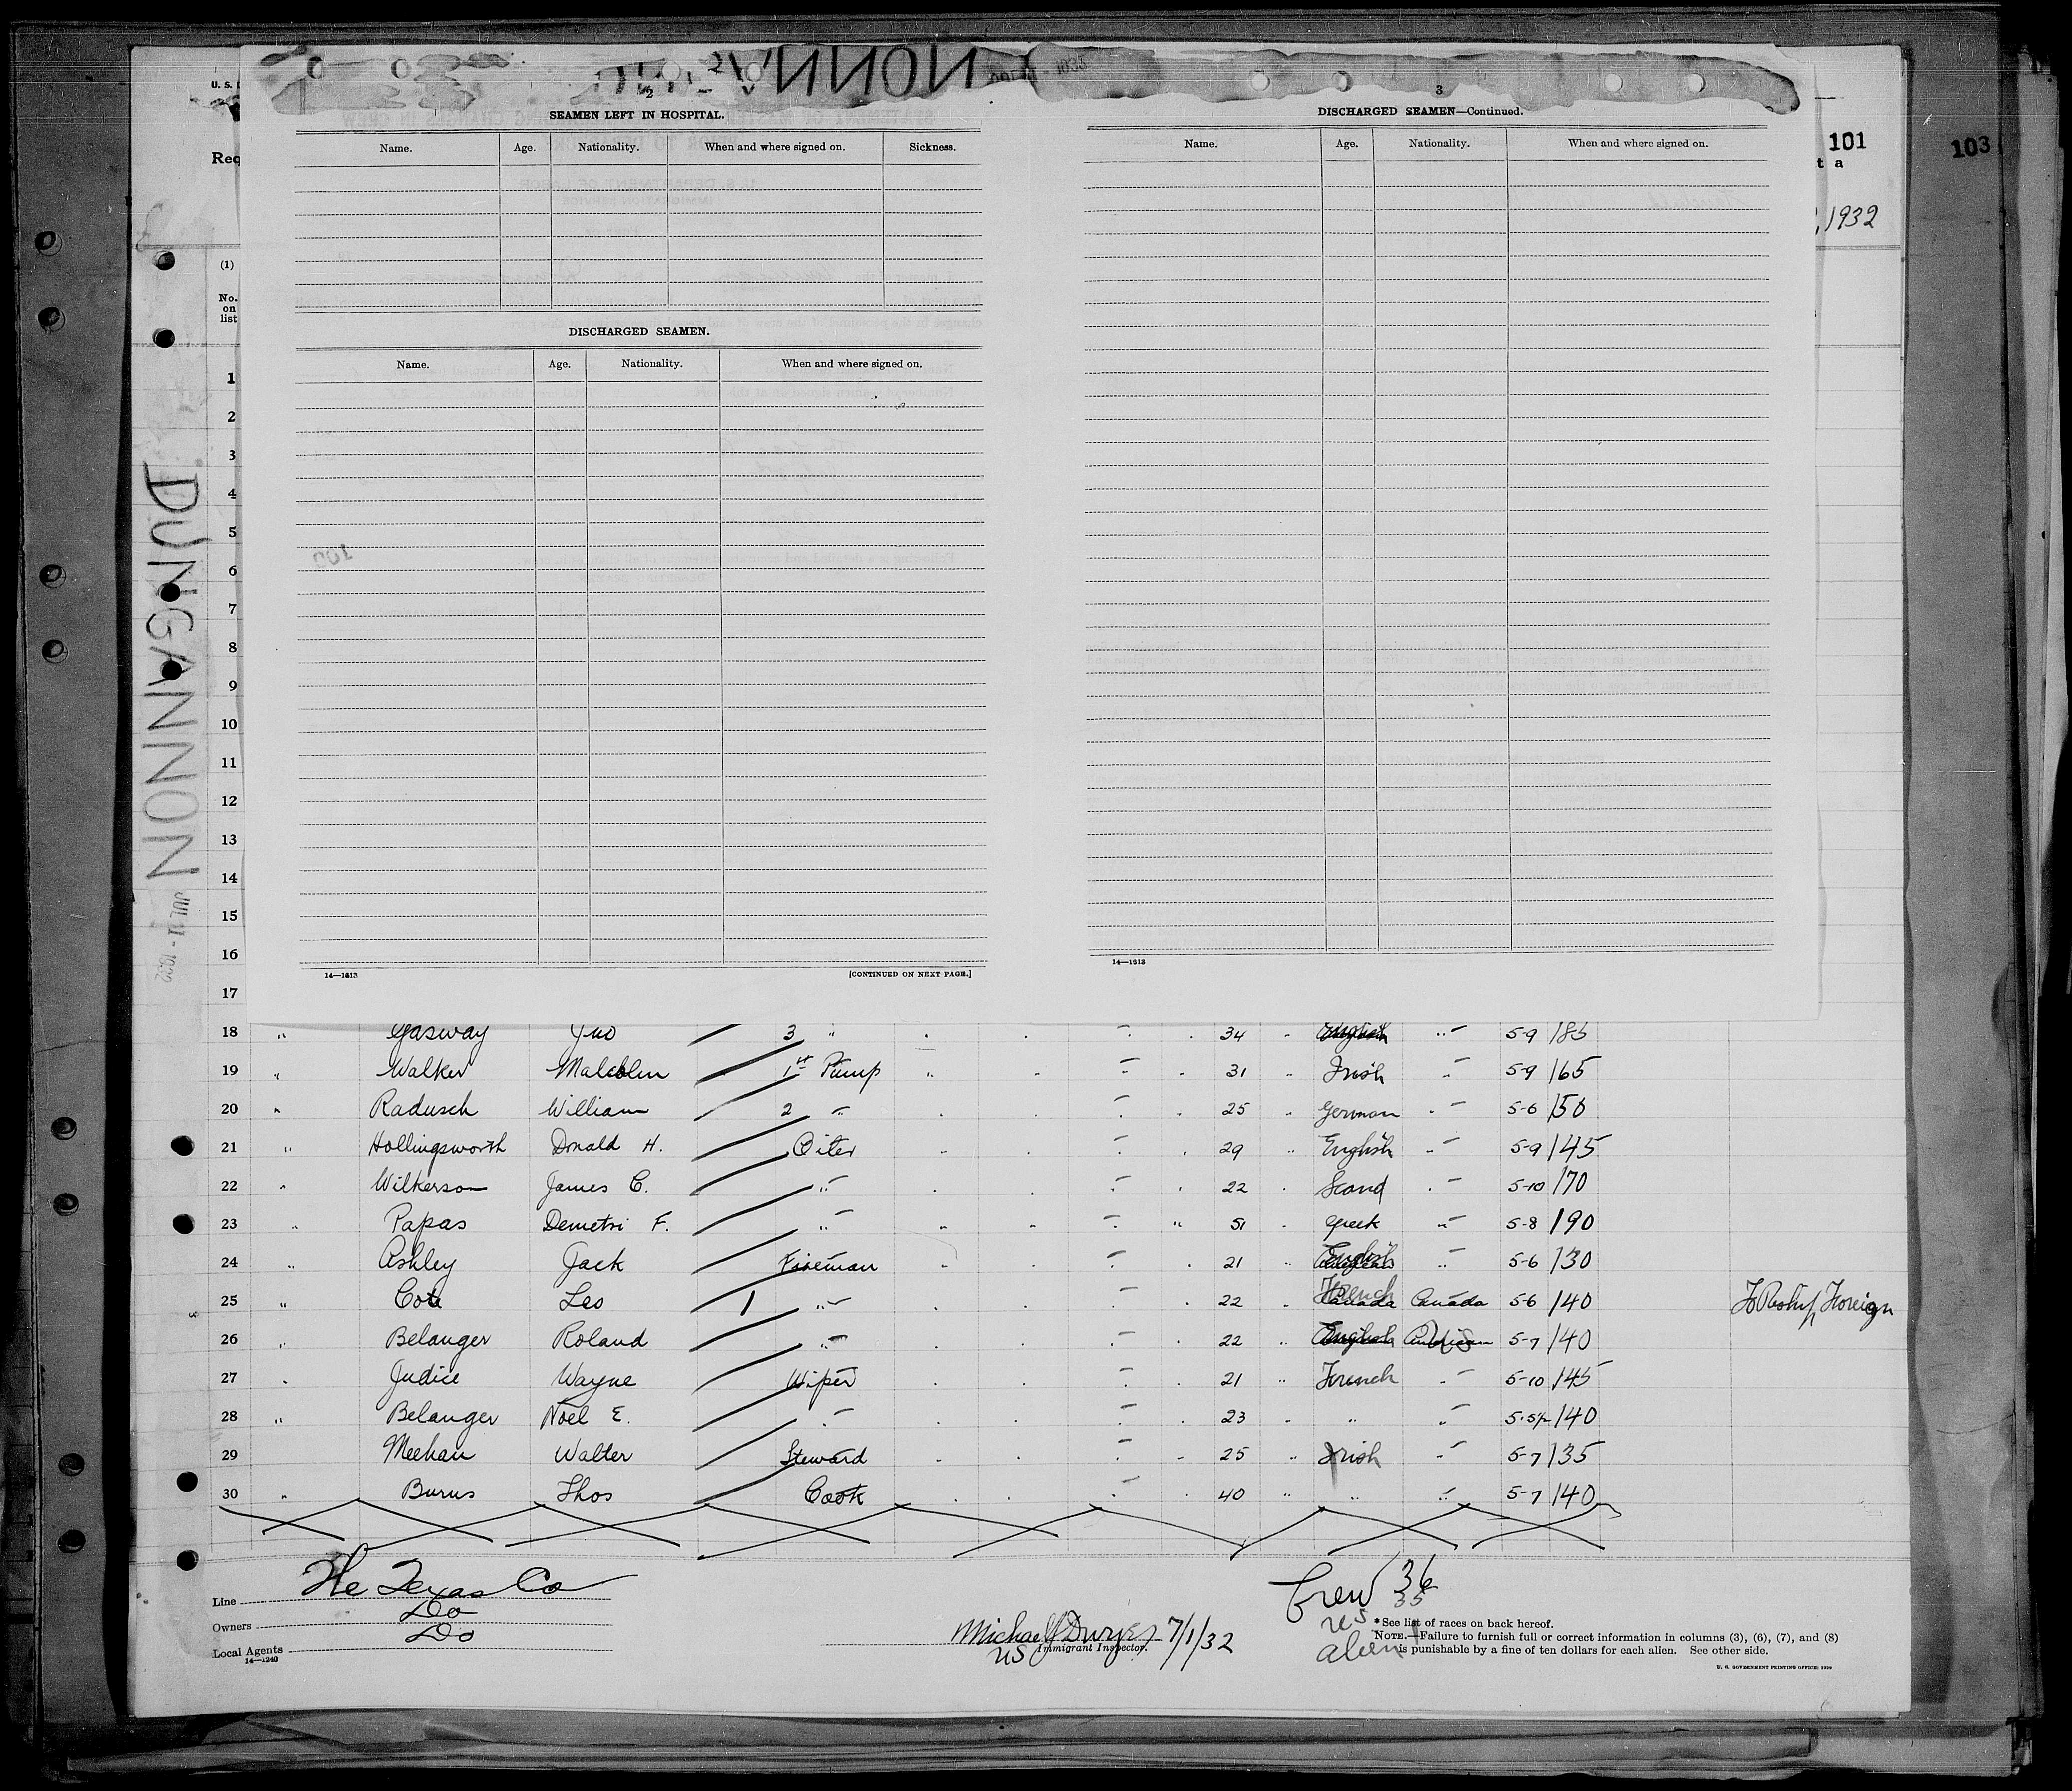 DUNGANNON
U. S.
2
3
SEAMEN LEFT IN HOSPITAL.
Name. Age. Nationality. When and where signed on. Sickness.
DISCHARGED SEAMEN.
Name. Age. Nationality. When and where signed on.
14—1613 [CONTINUED ON NEXT PAGE.]
DISCHARGED SEAMEN—Continued.
Name. Age. Nationality. When and where signed on.
14—1613
101
103
t a
, 1932
Req
(1)
No. on list
1
2
3
4
5
6
7
8
9
10
11
12
13
14
15
16
17
18 " Gasway Jno 3 " 34 "- 5-9 185
19 " Walker Malcolm 1st Pump 31 Irish " 5-9 165
20 " Radusch William 2 " 25 German " 5-6 150
21 " Hollingsworth Donald H. Oiler 29 English " 5-9 145
22 " Wilkerson James C. " 22 Scand " 5-10 170
23 " Papas Demetri F. " 51 Greek " 5-8 190
24 " Ashley Jack Fireman 21 English " 5-6 130
25 " Cote Leo 1 " 22 French Canada Canada 5-6 140 To Reship Foreign
26 " Belanger Roland " 22 English American US 5-7 140
27 " Judice Wayne Wiper 21 French " 5-10 145
28 " Belanger Noel E. " 23 " " 5-5½ 140
29 " Meehan Walter Steward 25 Irish " 5-7 135
30 " Burns Thos Cook 40 " " 5-7 140
Line The Texas Co
Owners Do
Local Agents Do
14—1240
Michael J Dwyer 7/1/32
US Immigrant Inspector.
Crew 36
US 35
alien 1
*See list of races on back hereof.
NOTE.—Failure to furnish full or correct information in columns (3), (6), (7), and (8)
is punishable by a fine of ten dollars for each alien. See other side.
U. S. GOVERNMENT PRINTING OFFICE: 1930
DUNGANNON
JUL 1 - 1932